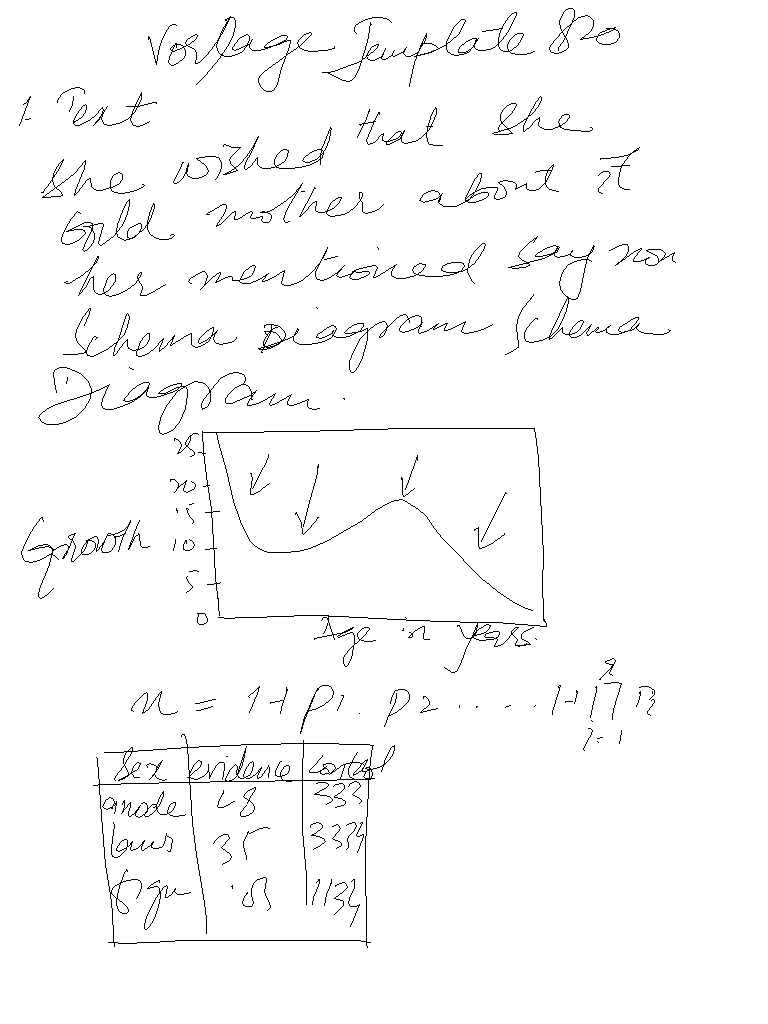 Vorlage Template 820
1. Text
She wished that she
told mother about it
her mentioned say non
Schema Diagram Schema
Diagram.
25
20
15
Growth 10
5
0
Age in years.
n = 1 + P1. P2 ..... 1 +
i = 1
Sex evidence control
anode 28 333
35 3334
1134